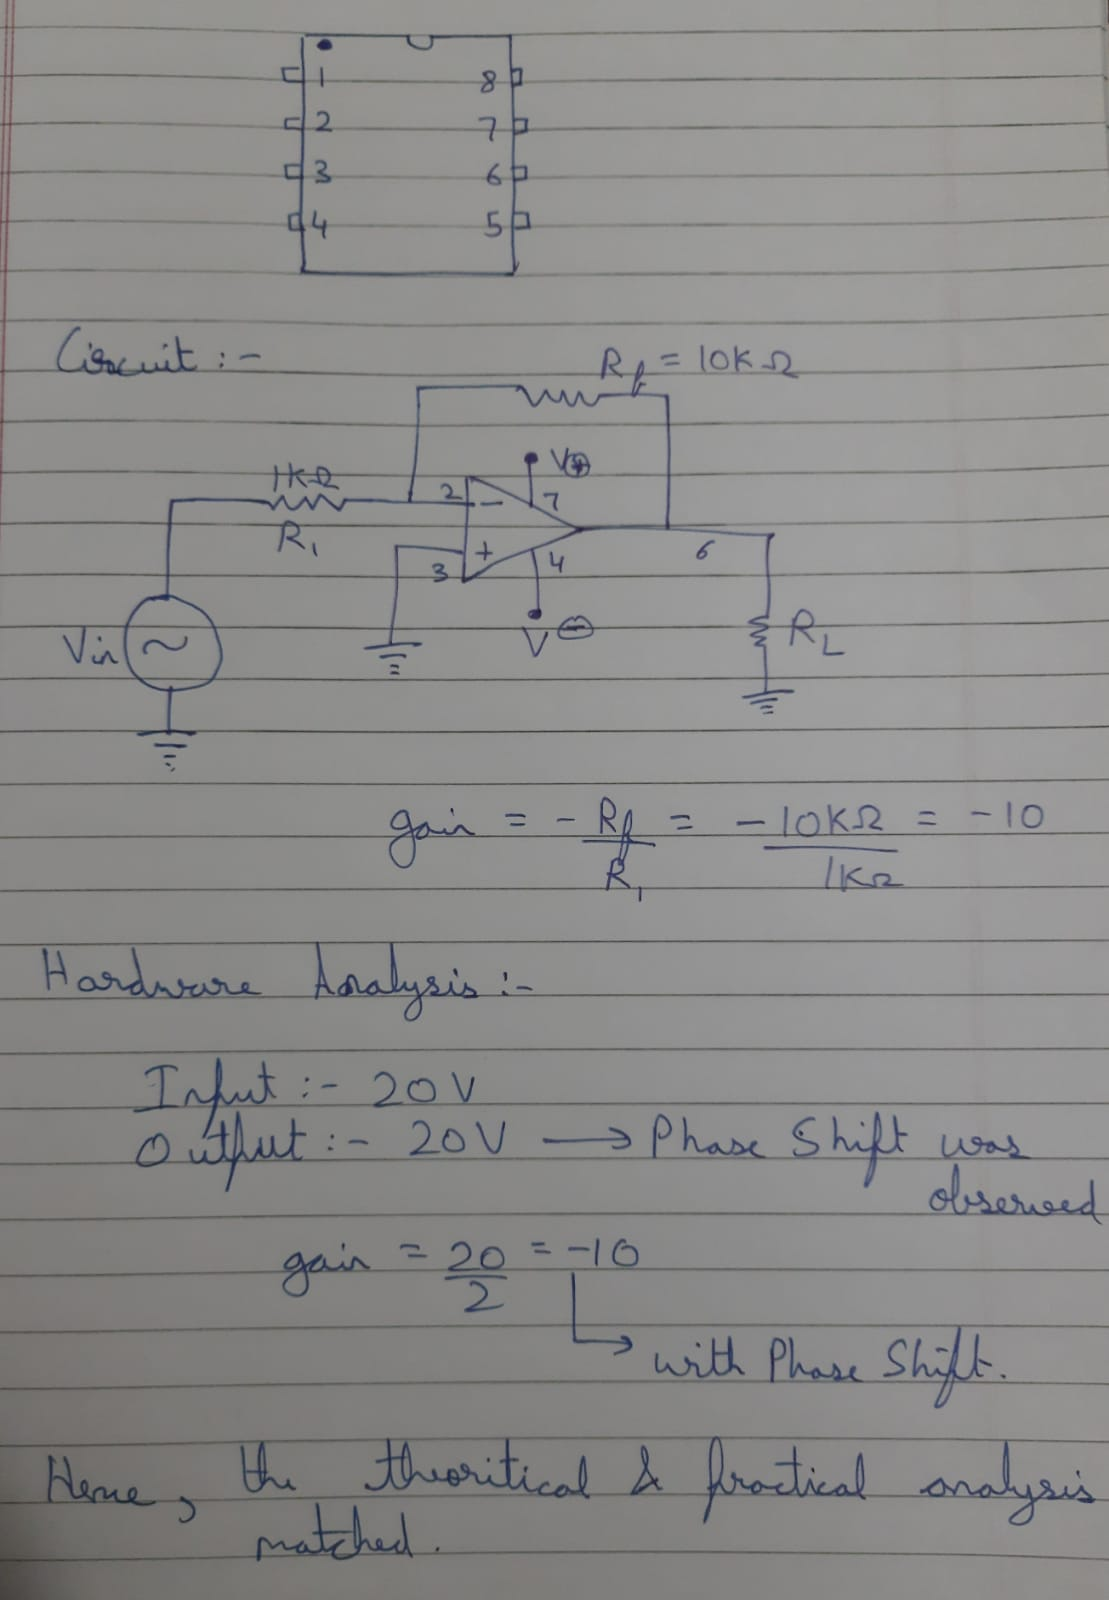 1 8
2 7
3 6
4 5
Circuit :-
Rf = 10KΩ
1KΩ
R1
2 -
V⊕
7
+
3
4
6
V ⊖
Vin
~
RL
gain = - Rf / R1 = -10KΩ / 1KΩ = -10
Hardware Analysis :-
Input :- 20V
Output :- 20V → Phase Shift was
observed
gain = 20/2 = -10
↳ with Phase Shift.
Hence, the theoritical & practical analysis
matched.